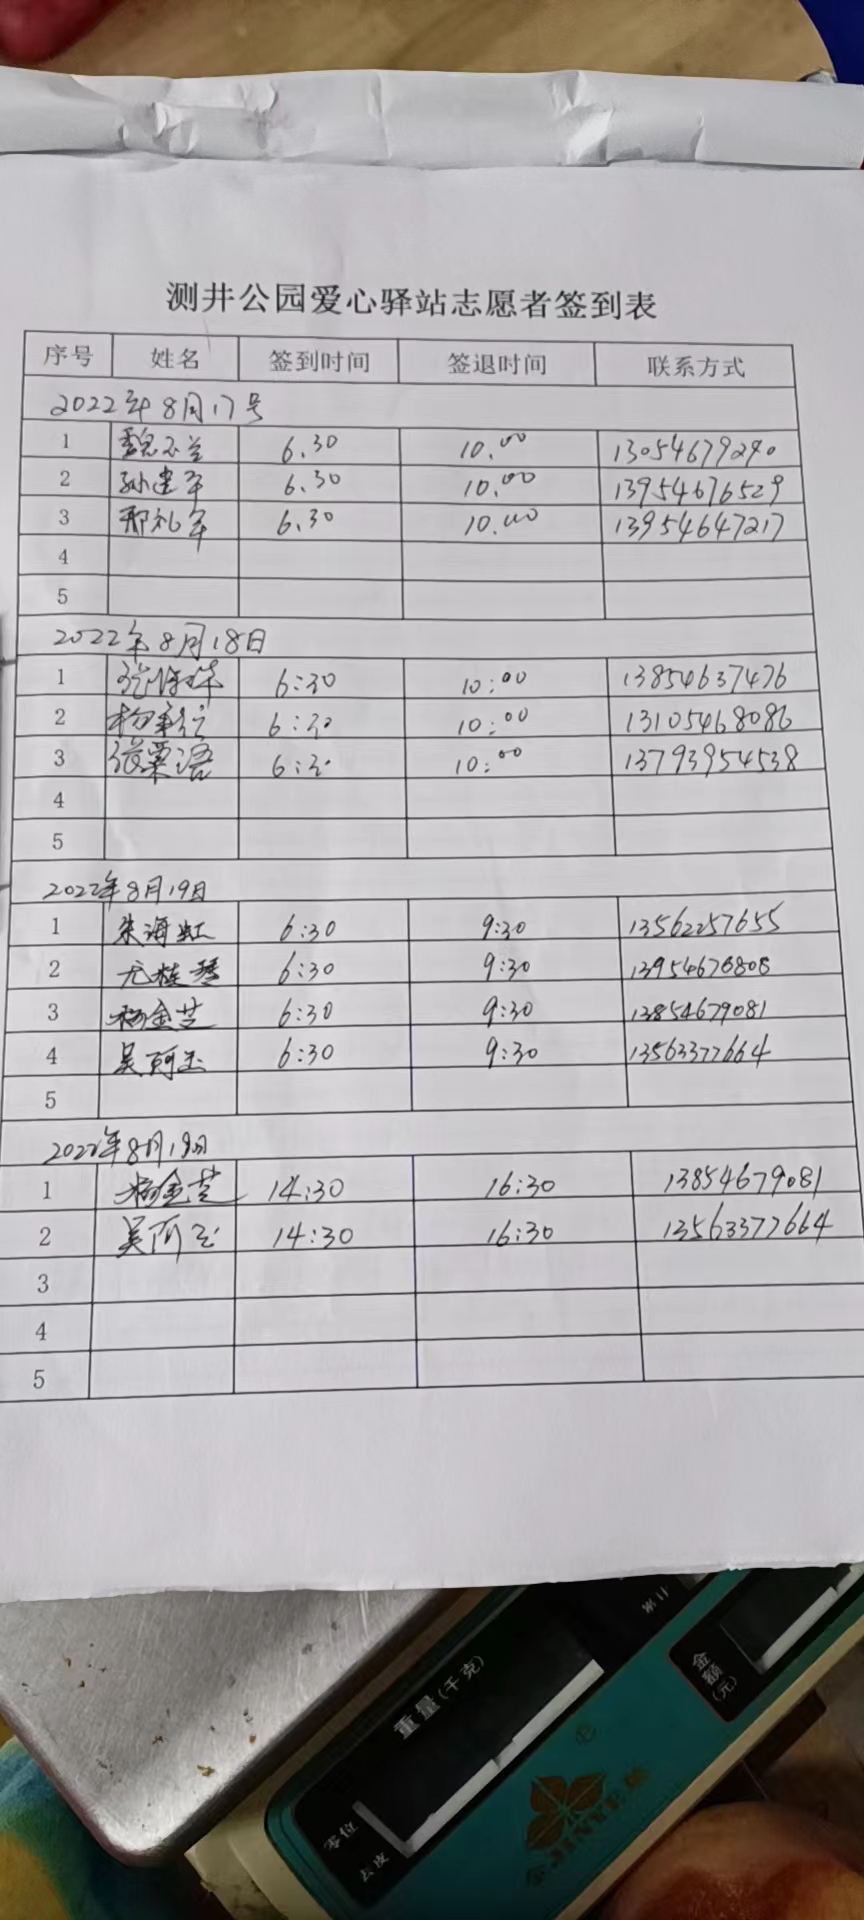 测井公园爱心驿站志愿者签到表
序号 姓名 签到时间 签退时间 联系方式
2022年8月17号
1 魏不兰 6.30 10.00 13054679290
2 孙建军 6.30 10.00 13954676529
3 邢礼军 6.30 10.00 13954647217
4
5
2022年8月18日
1 6:30 10:00 13854637476
2 6:30 10:00 13105468086
3 张粟洛 6:30 10:00 13793954538
4
5
2022年8月19日
1 朱海虹 6:30 9:30 13562257655
2 尤桂琴 6:30 9:30 13954676808
3 杨金芝 6:30 9:30 13854679081
4 吴阿玉 6:30 9:30 13563377664
5
2022年8月19日
1 杨金芝 14:30 16:30 13854679081
2 吴阿玉 14:30 16:30 13563377664
3
4
5
累计
金额(元)
重量(千克)
零位
去皮